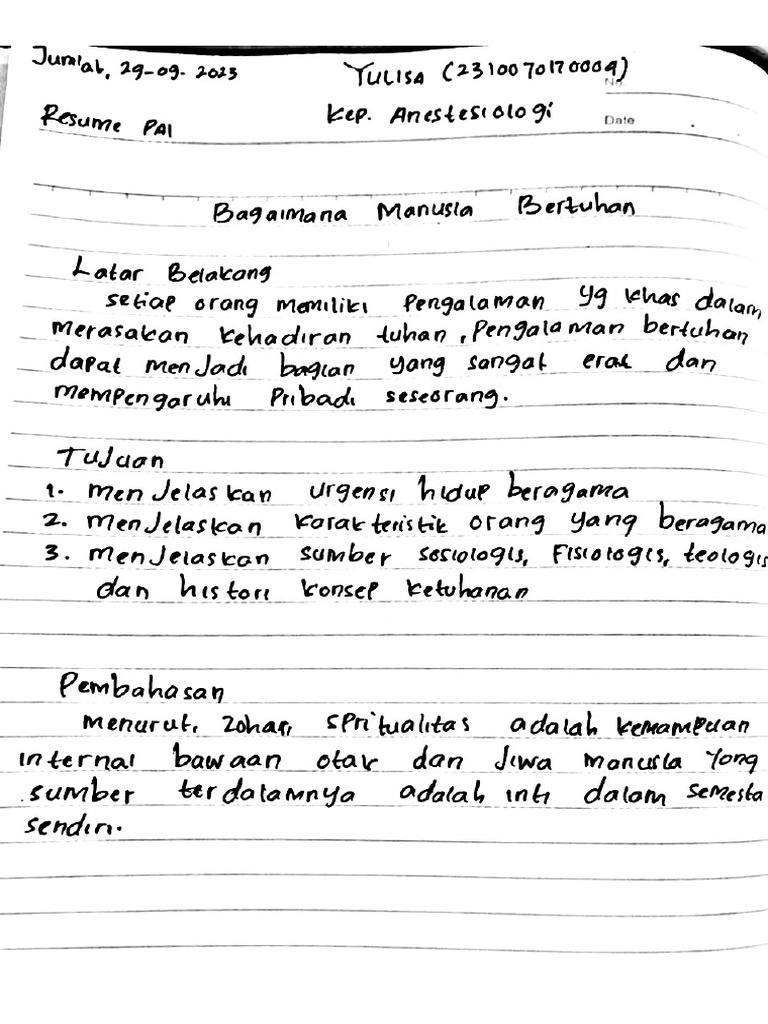 Jum'at, 29-09-2023
YULISA (2310070170009)
No.
Resume PAI
Kep. Anestesiologi
Date
Bagaimana Manusia Bertuhan
Latar Belakang
setiap orang memiliki pengalaman yg khas dalam
merasakan kehadiran tuhan, pengalaman bertuhan
dapat menjadi bagian yang sangat erat dan
mempengaruhi pribadi seseorang.
Tujuan
1. menjelaskan urgensi hidup beragama
2. menjelaskan karakteristik orang yang beragama
3. menjelaskan sumber sosiologis, Fisiologis, teologis
dan histori konsep ketuhanan
Pembahasan
menurut, Zohar, spritualitas adalah kemampuan
internal bawaan otak dan Jiwa manusia yang
sumber terdalamnya adalah inti dalam semesta
sendiri.